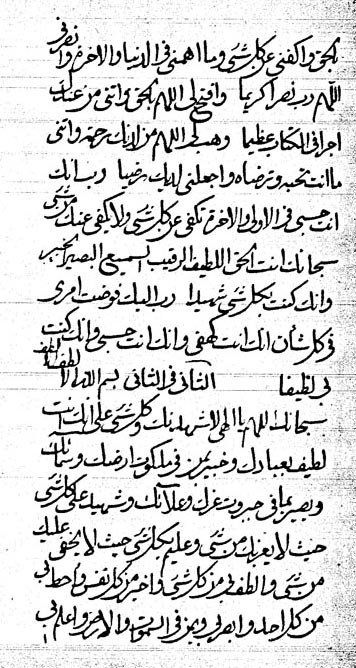 بالحق واكفني عن كل شيء وما اهمني في الدنيا والاخرة وانصرني
اللهم رب نصرا كريما وافتح لي اللهم بالحق واتني من عندك
اجرا في الكتاب عظيما وهب لي اللهم من لدنك رحمة واتني
ما انت تحبه وترضاه واجعلني لديك رضيا رب انك
انت حسبي في الاولى والاخرة تكفي عن كل شيء ولا يكفي عنك من شيء
سبحانك انت الحق اللطيف الرقيب السميع البصير الخبير
وانك كنت بكل شيء شهيدا رب اليك فوضت امري
في كل شأن انك انت كهفي وانك انت حسبي وانك كنت
بي لطيفا الثاني في الثاني بسم الله الالطف الالطف
سبحانك اللهم يا الهي لاشهدنك وكل شيء على انك انت
لطيف بعبادك وخبير بمن في ملكوت ارضك وسمائك
وبصير بما في جبروت عزك وعلائك وشهيد على كل شيء
حيث لا يعزب من شيء وعليم بكل شيء حيث لا يخفى عليك
من شيء والطف بي من كل شيء واخبر من كل نفس واحط بي
من كل احد وابصر بي وبمن في السموات والارض واعلم بي